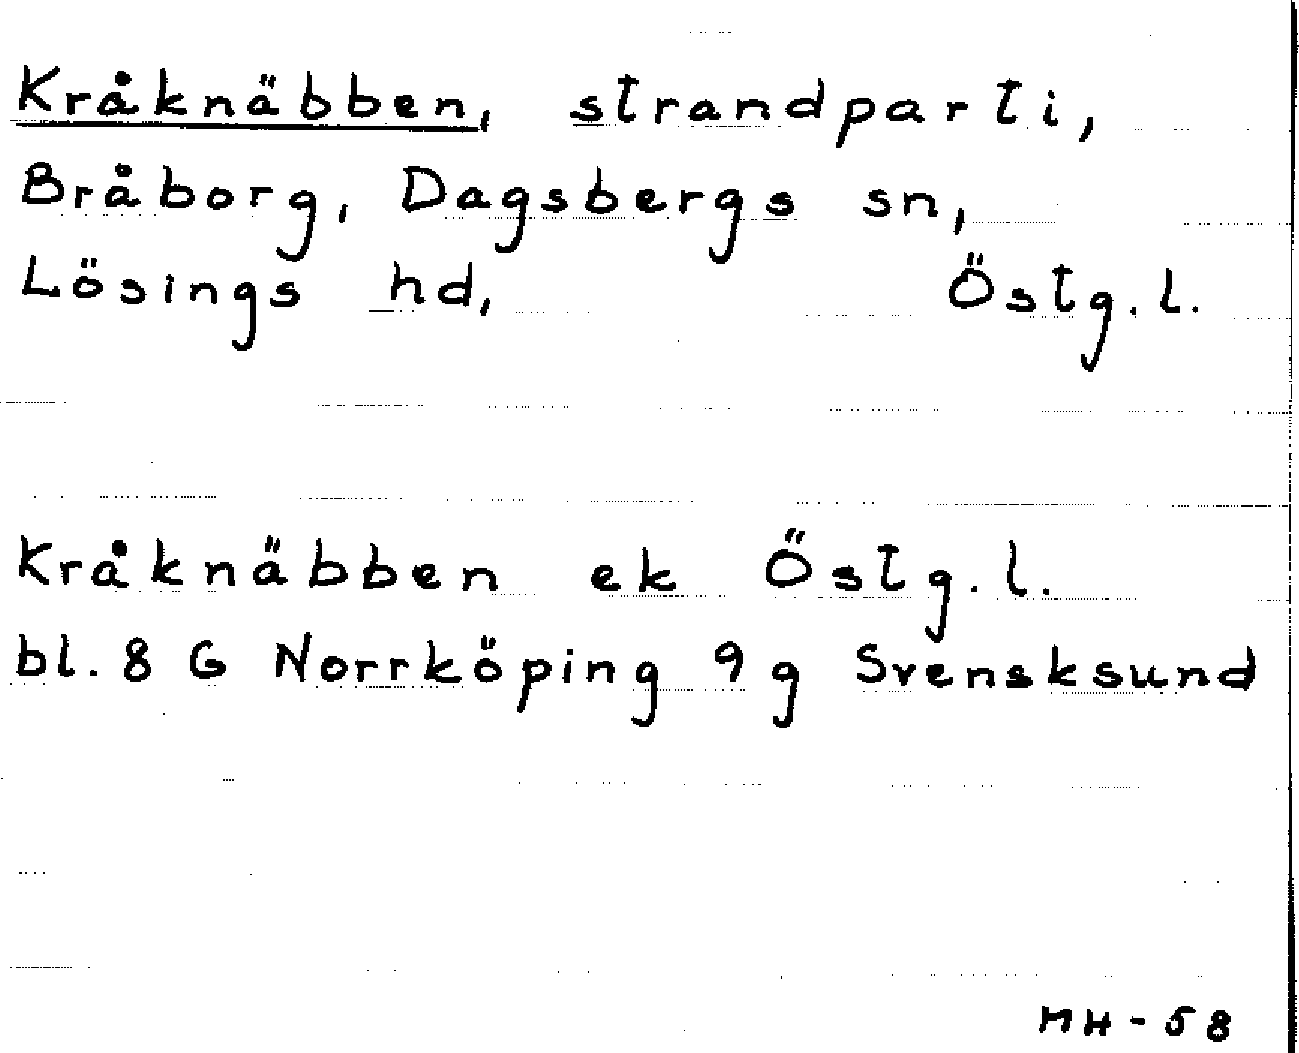 Kråknäbben, strandparti,
Bråborg, Dagsbergs sn,
Lösings hd, Östg.l.
Kråknäbben ek Östg.l.
bl. 8 G Norrköping 9 g Svensksund
MH-58